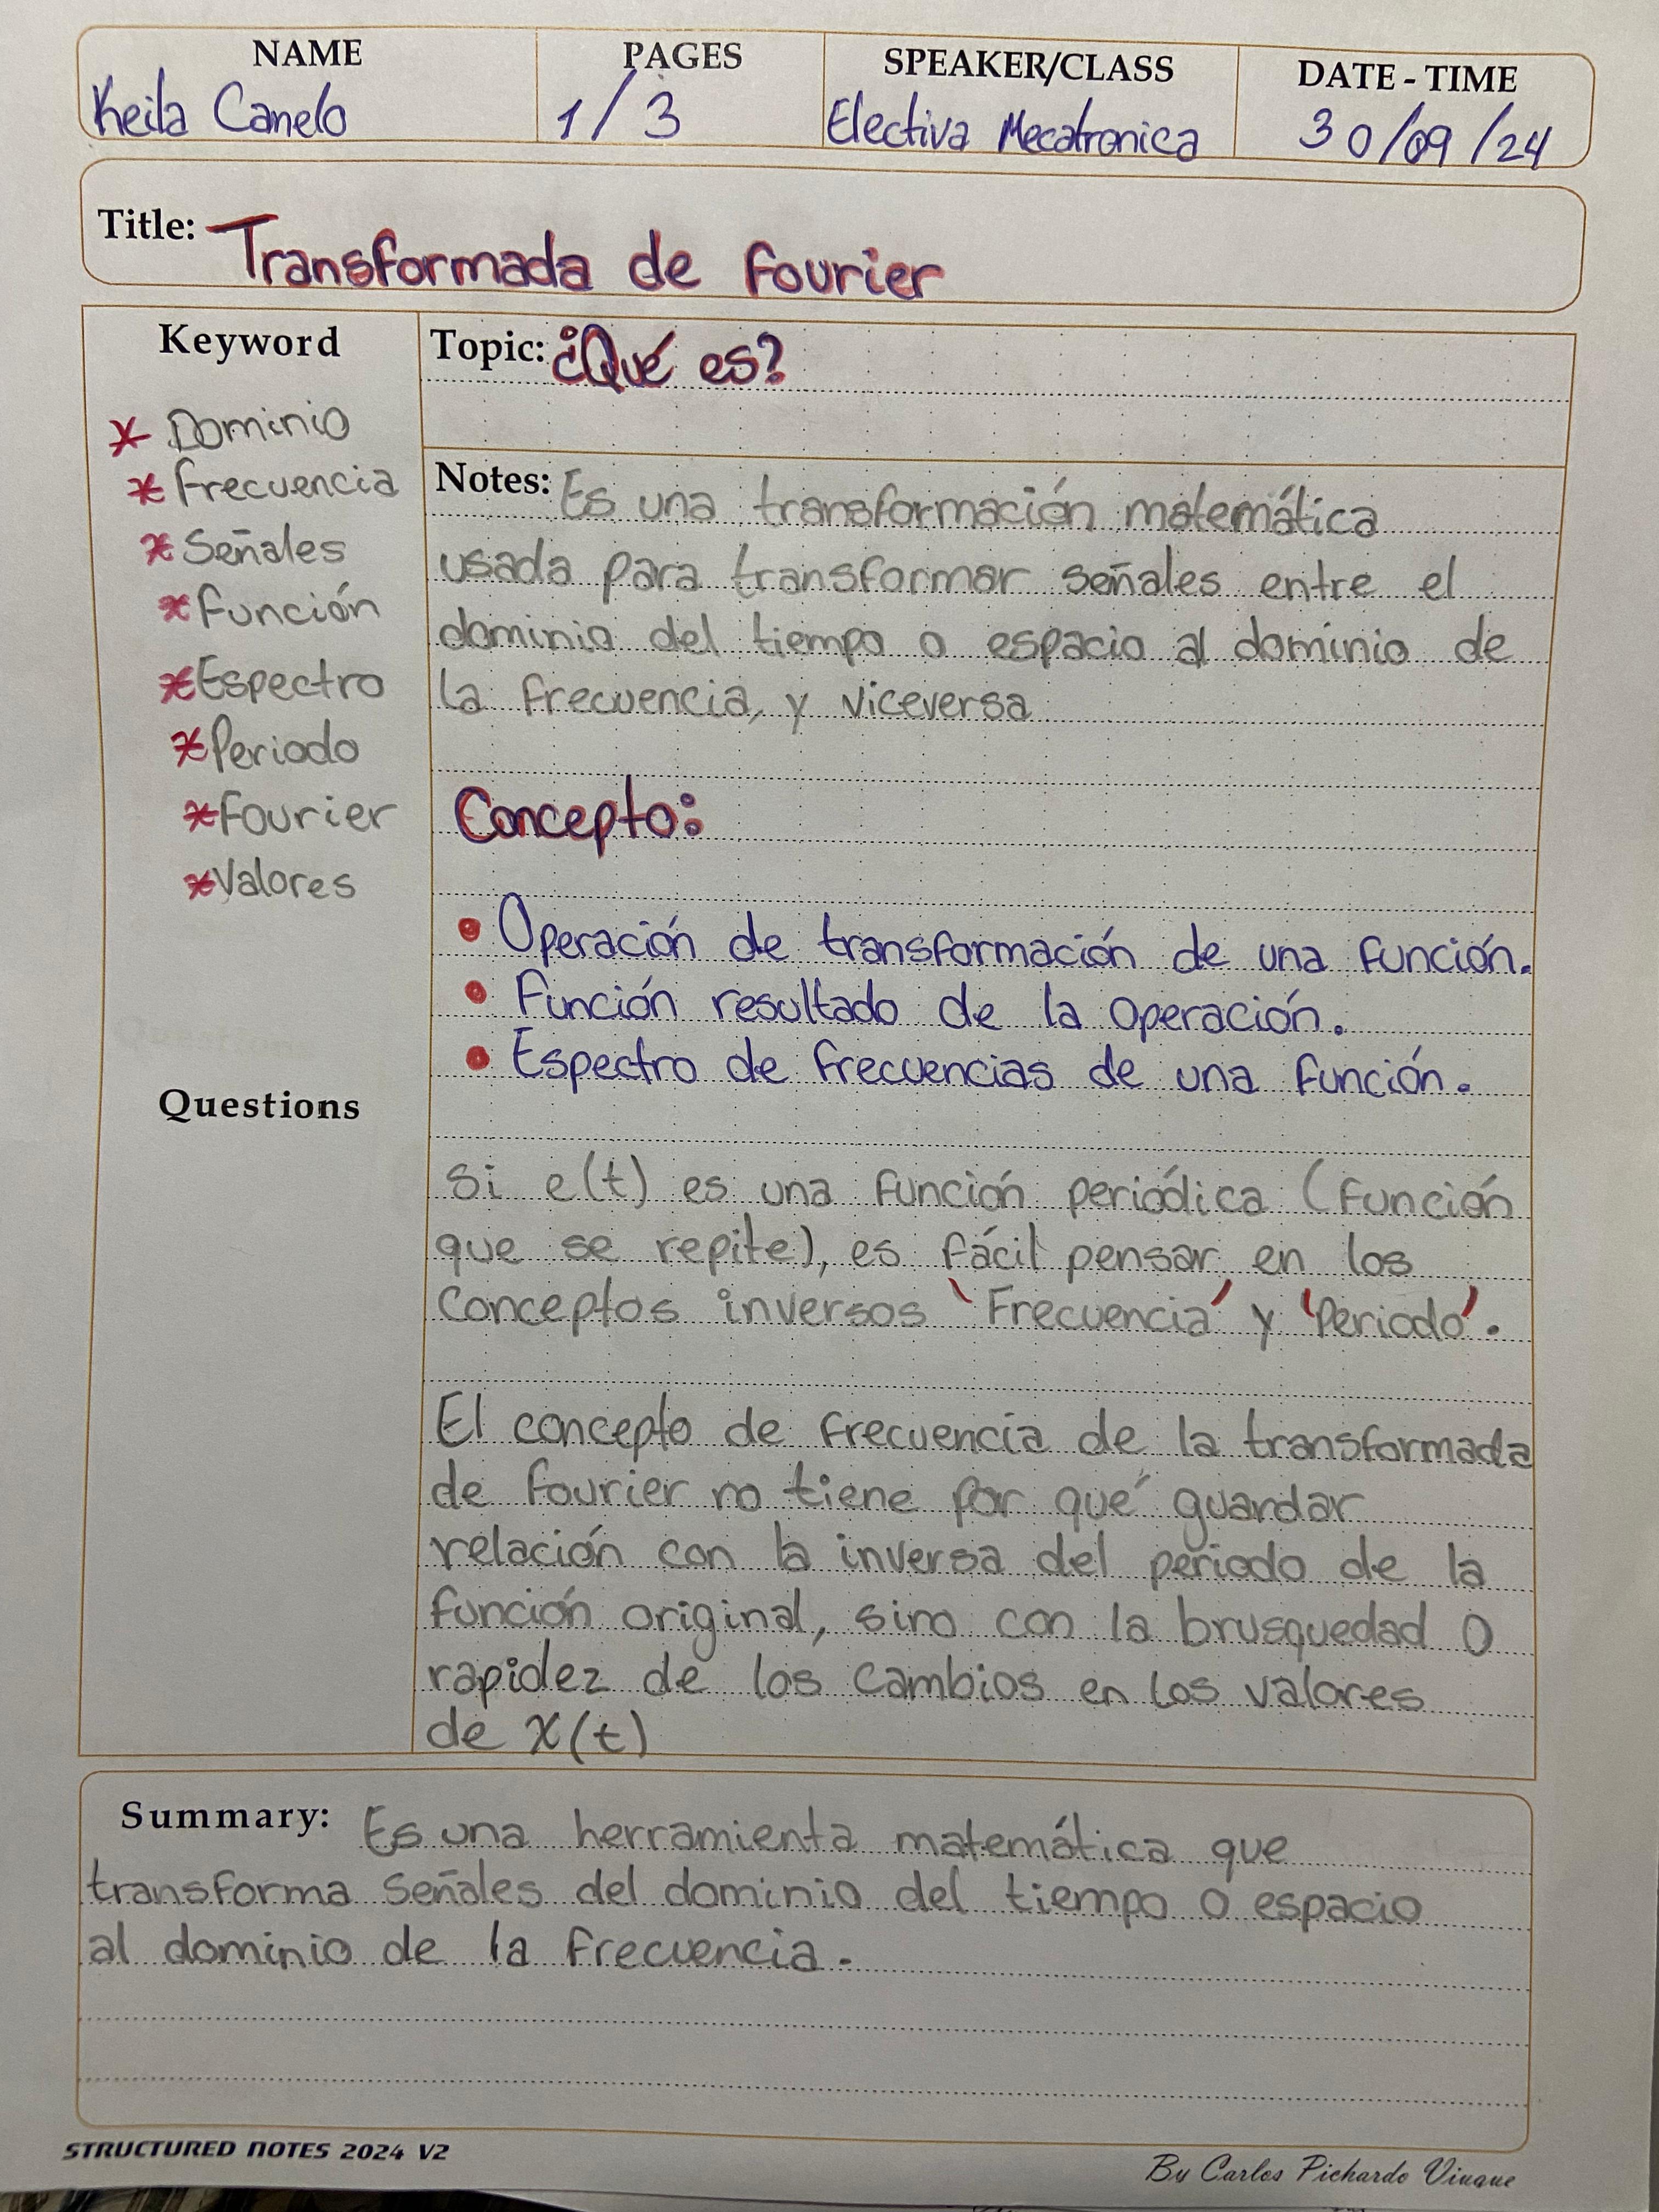 NAME
Keila Canelo
PAGES
1/3
SPEAKER/CLASS
Electiva Mecatronica
DATE - TIME
30/09/24
Title: Transformada de Fourier
Keyword
* Dominio
* Frecuencia
* Señales
* Función
* Espectro
* Periodo
* Fourier
* Valores
Questions
Topic: ¿Qué es?
Notes: Es una transformación matemática
usada para transformar señales entre el
dominio del tiempo o espacio al dominio de
la frecuencia, y viceversa
Concepto:
• Operación de transformación de una función.
• Función resultado de la operación.
• Espectro de frecuencias de una función.
Si e(t) es una función periódica (función
que se repite), es fácil pensar en los
Conceptos inversos 'Frecuencia' y 'Periodo'.
El concepto de frecuencia de la transformada
de Fourier no tiene por qué guardar
relación con la inversa del periodo de la
función original, sino con la brusquedad o
rapidez de los cambios en los valores
de x(t)
Summary: Es una herramienta matemática que
transforma señales del dominio del tiempo o espacio
al dominio de la frecuencia.
STRUCTURED NOTES 2024 V2
By Carlos Pichardo Viuque